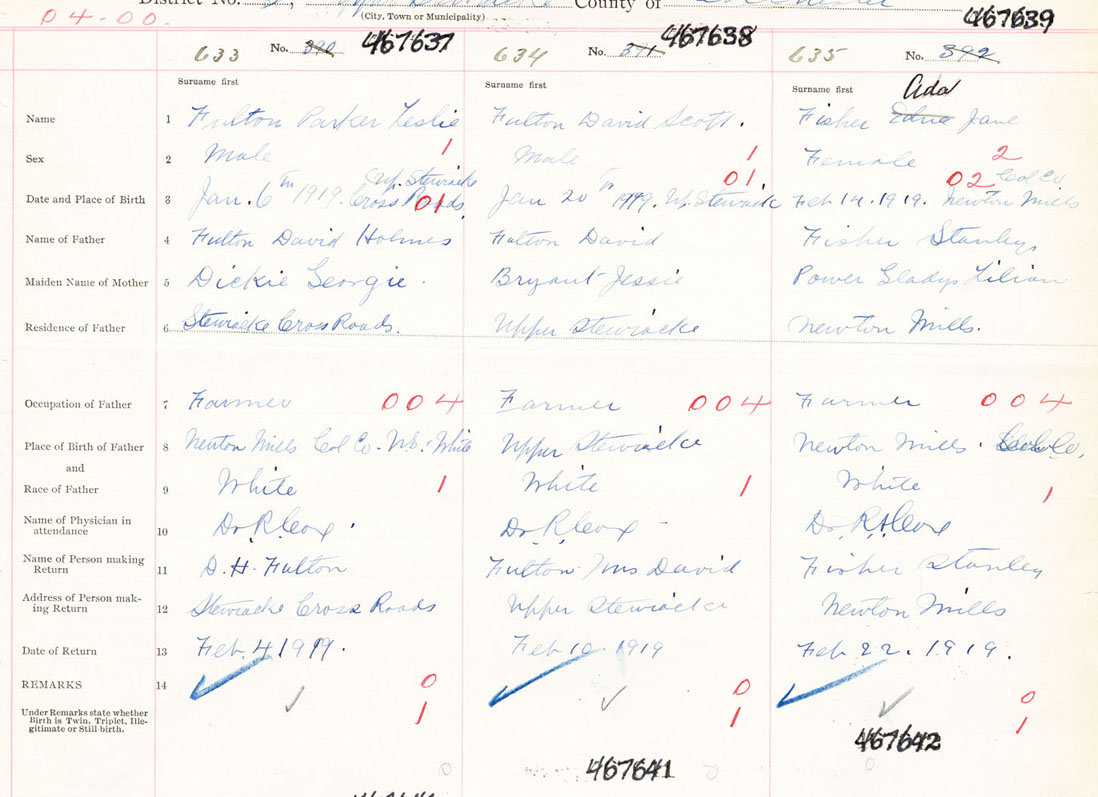 District No. County of
(City, Town or Municipality)
04-00. 467639
633 No. 390 467637 634 No. 391 467638 635 No. 392
Surname first Surname first Surname first Ada
Name 1 Fulton Parker Leslie Fulton David Scott. Fisher Edna Jane
Sex 2 Male 1 Male 1 Female 2
Up. Stewiacke 01 02 Col Co.
Date and Place of Birth 3 Jan. 6th 1919. Cross Roads 01 Jan 20th 1919. Up. Stewiacke Feb 14. 1919. Newton Mills
Name of Father 4 Fulton David Holmes Fulton David Fisher Stanley
Maiden Name of Mother 5 Dickie Georgie. Bryant Jessie Power Gladys Lilian
Residence of Father 6 Stewiacke Cross Roads. Upper Stewiacke Newton Mills.
Occupation of Father 7 Farmer 004 Farmer 004 Farmer 004
Place of Birth of Father 8 Newton Mills Col Co. N.S. White Upper Stewiacke Newton Mills. Col Co.
and
Race of Father 9 White 1 White 1 White 1
Name of Physician in
attendance 10 Dr. R. Cox Dr. R. Cox Dr. R H Cox
Name of Person making
Return 11 D. H. Fulton Fulton Mrs David Fisher Stanley
Address of Person mak-
ing Return 12 Stewiacke Cross Roads Upper Stewiacke Newton Mills
Date of Return 13 Feb. 4 1919. Feb 10 1919 Feb 22. 1919.
REMARKS 14 0 0 0
Under Remarks state whether
Birth is Twin, Triplet, Ille-
gitimate or Still-birth. 1 1 1
467641 467642